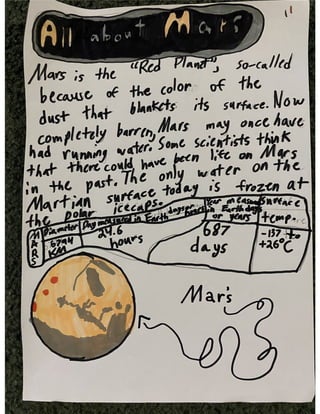 11
All about Mars
Mars is the "Red Planet", so-called
because of the color of the
dust that blankets its surface. Now
completely barren, Mars may once have
had running water. Some scientists think
that there could have been life on Mars
in the past. The only water on the
Martian surface today is frozen at
the polar icecaps.
MARS
Diameter
Day measured in Earth
Year measured
in Earth days
or years
Surface
temp.
6794
KM
24.6
hours
687
days
-137 to
+26°C
Mars